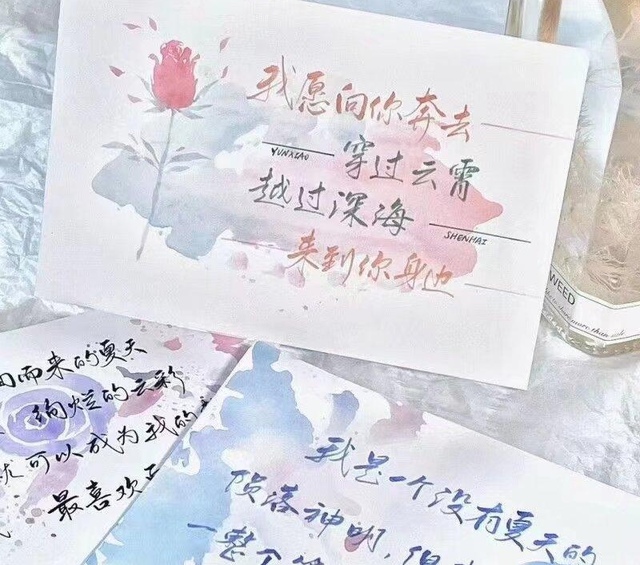 我愿向你奔去
YUNXIAO
穿过云霄
越过深海
SHENHAI
来到你身边
WEED
而来的夏天
绚烂的云彩
可以成为我的
最喜欢
我是一个没有夏天的
陨落神明,但
一整个